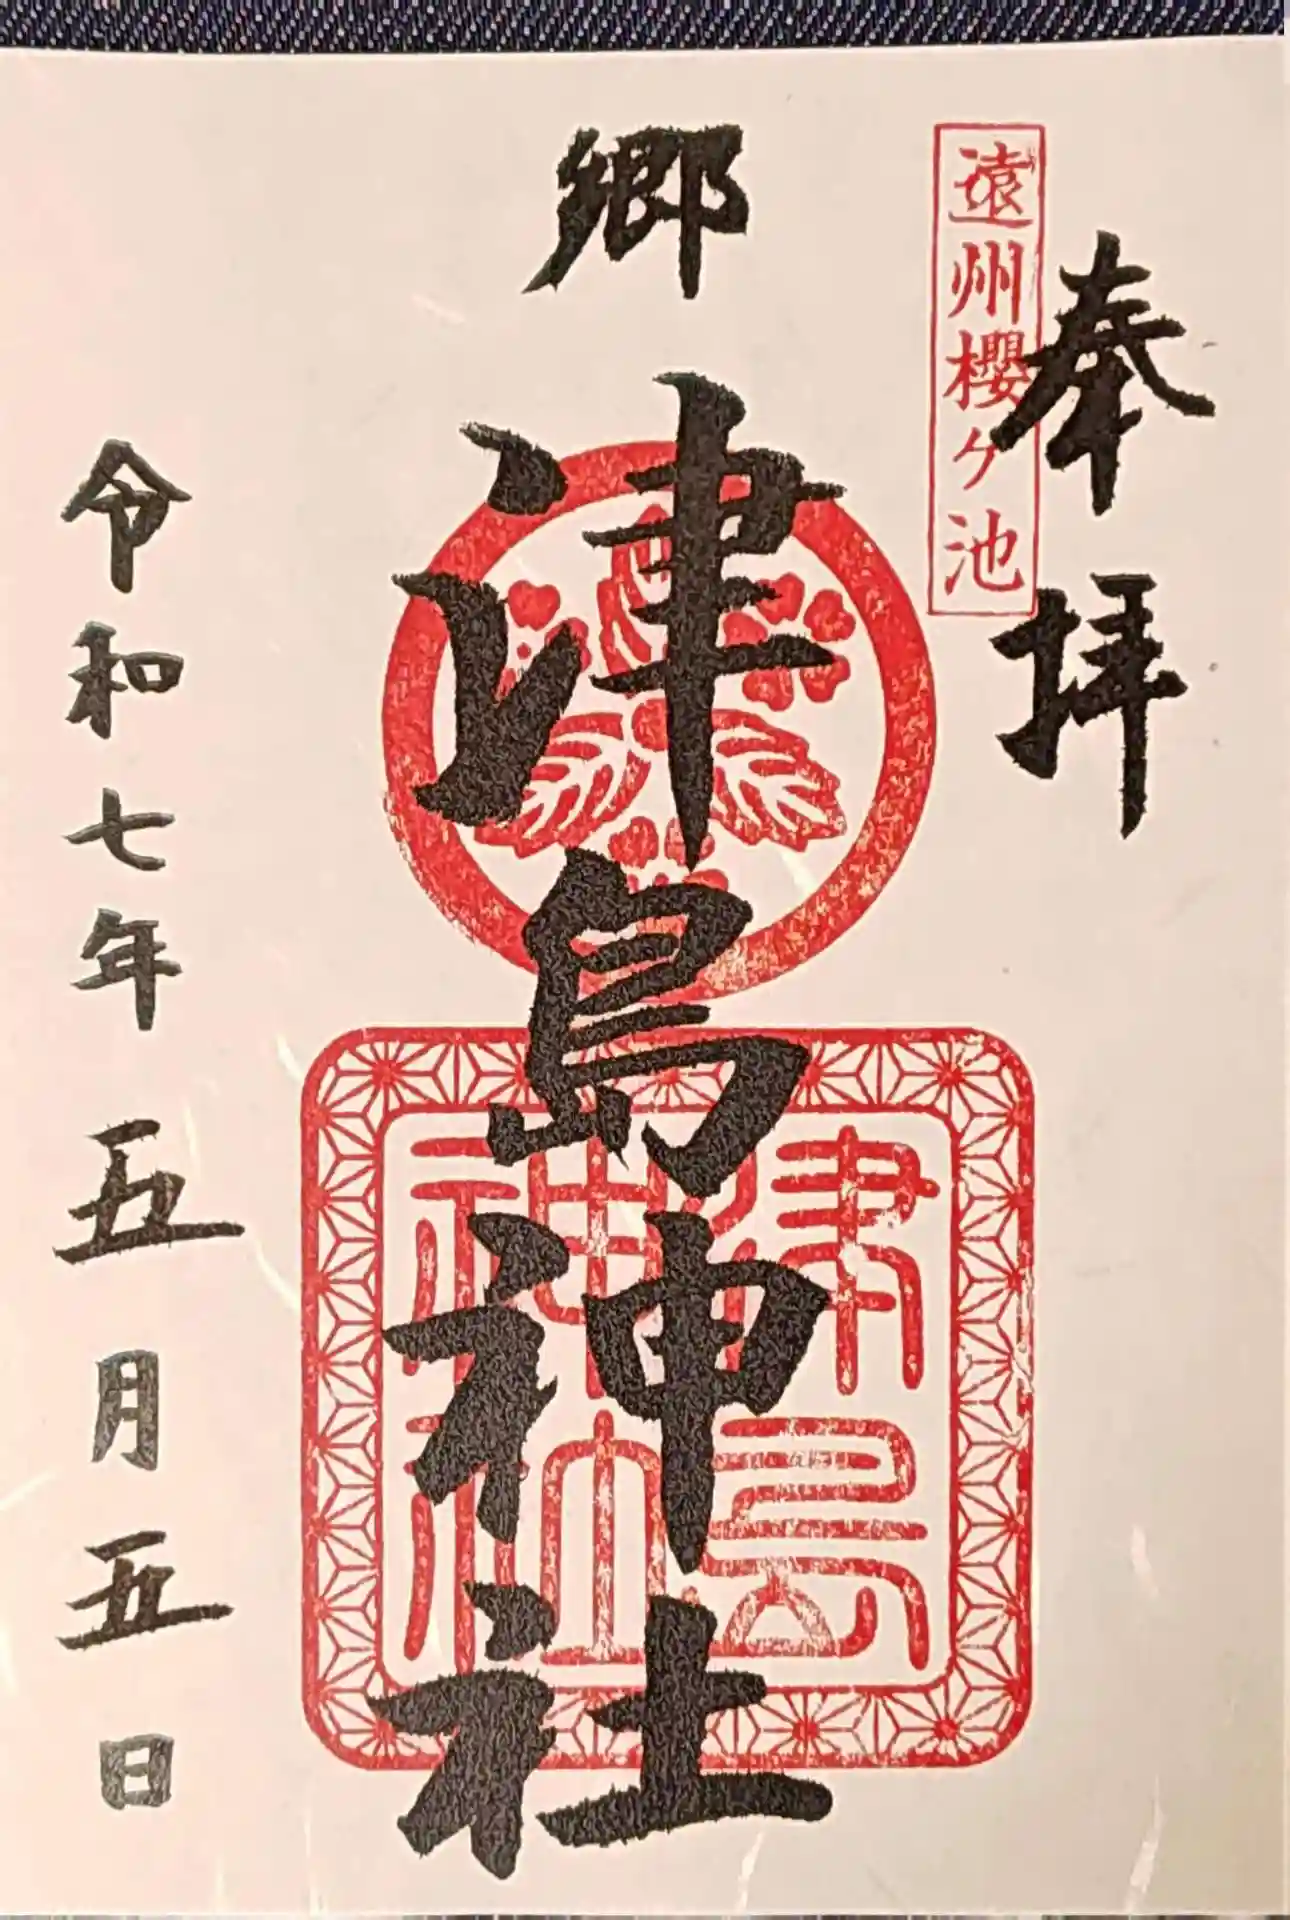 奉拝
遠州櫻ケ池
郷
津島神社
津島
神社
令和七年五月五日